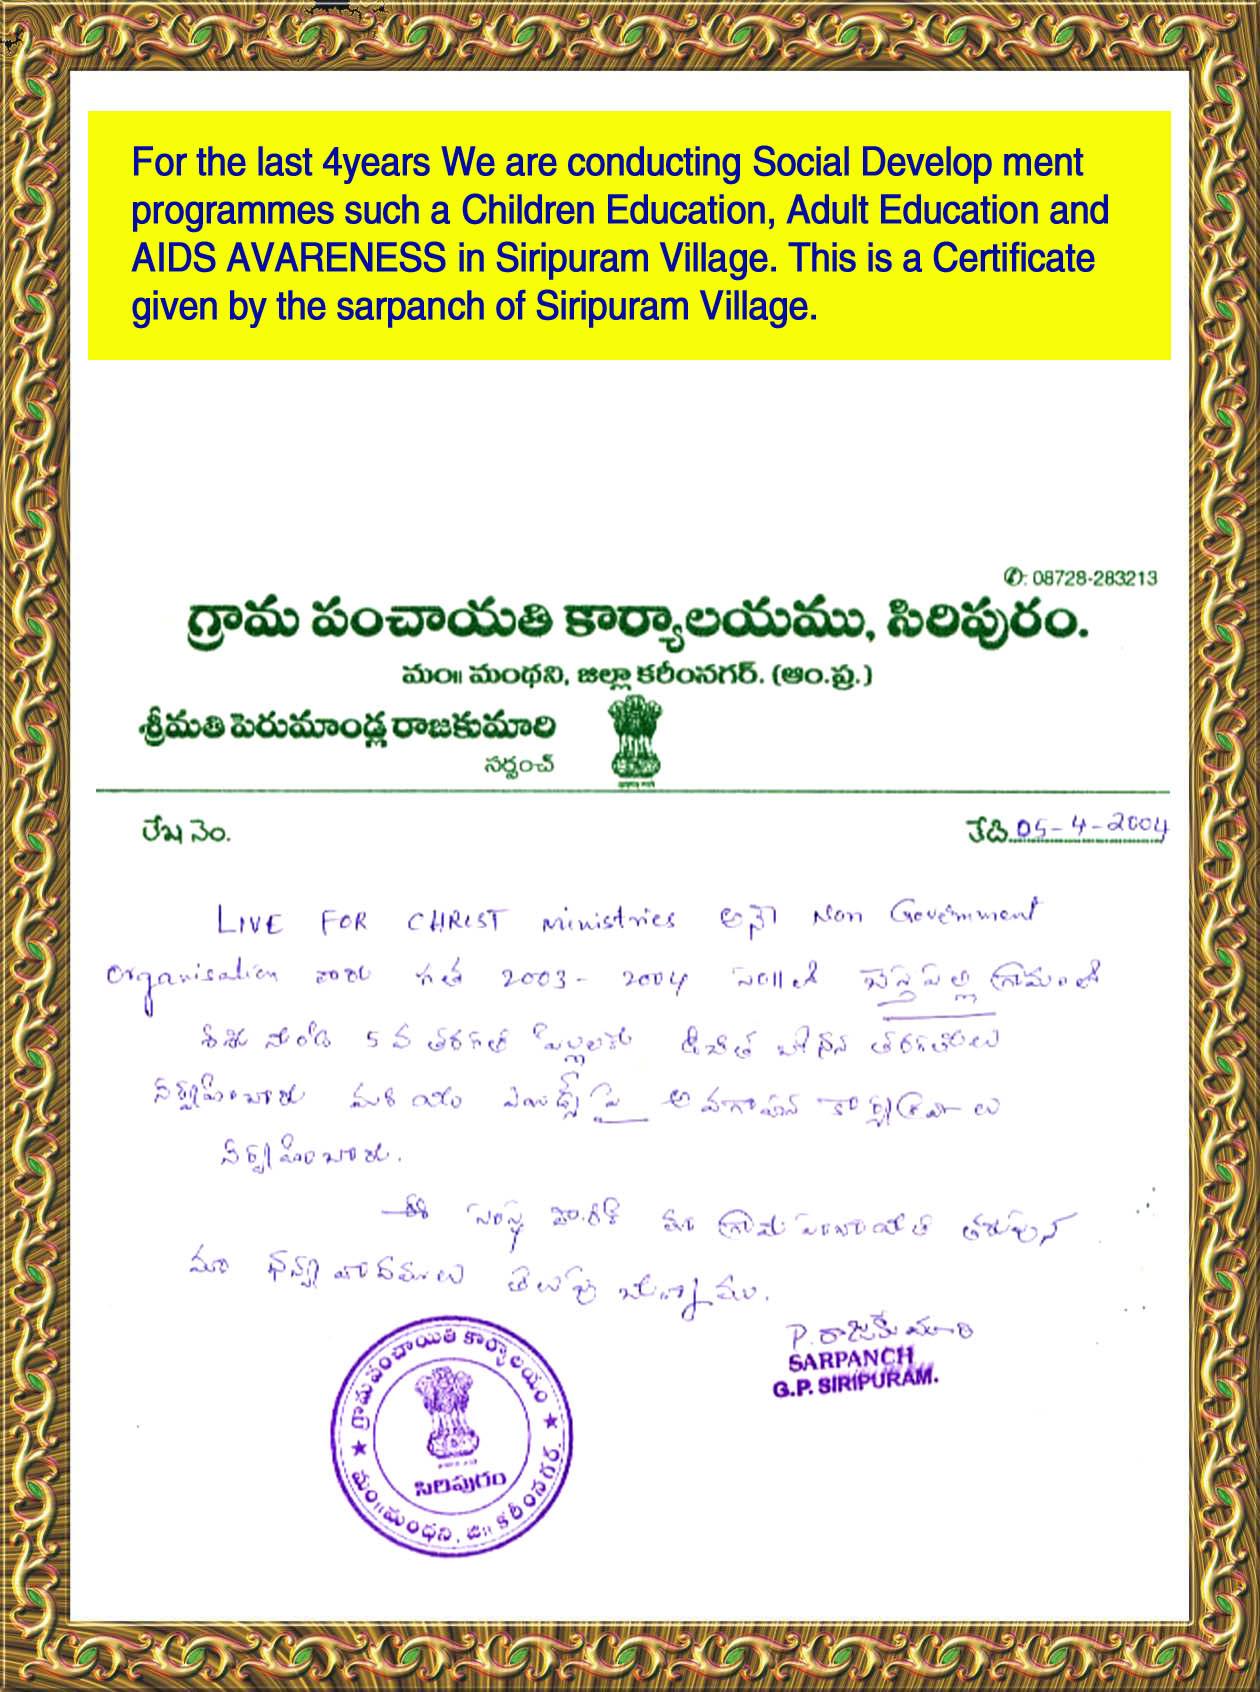 For the last 4years We are conducting Social Develop ment
programmes such a Children Education, Adult Education and
AIDS AVARENESS in Siripuram Village. This is a Certificate
given by the sarpanch of Siripuram Village.
✆: 08728-283213
గ్రామ పంచాయతి కార్యాలయము, సిరిపురం.
మం॥ మంథని, జిల్లా కరీంనగర్. (ఆం.ప్ర.)
శ్రీమతి పెరుమాండ్ల రాజకుమారి
సర్పంచ్
లేఖ నెం.
తేది 05-4-2004
LIVE FOR CHRIST Ministries అనే Non Government
Organisation వారు గత 2003-2004 సం॥లో బెస్తపల్లి గ్రామంలో
శిశు నుండి 5వ తరగతి పిల్లలకు ఉచిత బోధన తరగతులు
నిర్వహించారు మరియు ఎయిడ్స్ పై అవగాహన కార్యక్రమాలు
నిర్వహించారు.
ఈ సంస్థ వారికి మా గ్రామ పంచాయితి తరుపున
మా ధన్యవాదములు తెలుపు చున్నాము.
P. రాజకుమారి
SARPANCH
G.P. SIRIPURAM.
గ్రామ పంచాయితి కార్యాలయం
సిరిపురం
మం॥మంథని, జి॥ కరీంనగర్.